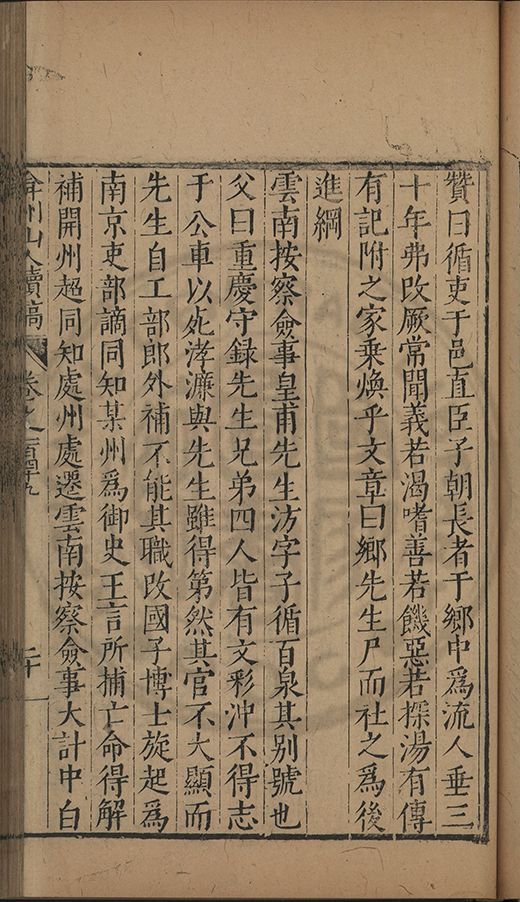 贊曰循吏于邑直臣于朝長者于鄉中爲流人垂三
十年弗改厥常聞義若渴嗜善若饑惡若探湯有傳
有記附之家乗煥乎文章曰鄉先生尸而社之爲後
進綱
雲南按察僉事皇甫先生汸字子循百泉其别號也
父曰重慶守録先生兄弟四人皆有文彩沖不得志
于公車以死涍濂與先生雖得第然其官不大顯而
先生自工部郎外補不能其職改國子博士旋起爲
南京吏部謫同知某州爲御史王言所捕亡命得解
補開州超同知處州處遷雲南按察僉事大計中白
弇州山人續稿 卷之一百四十九 二十